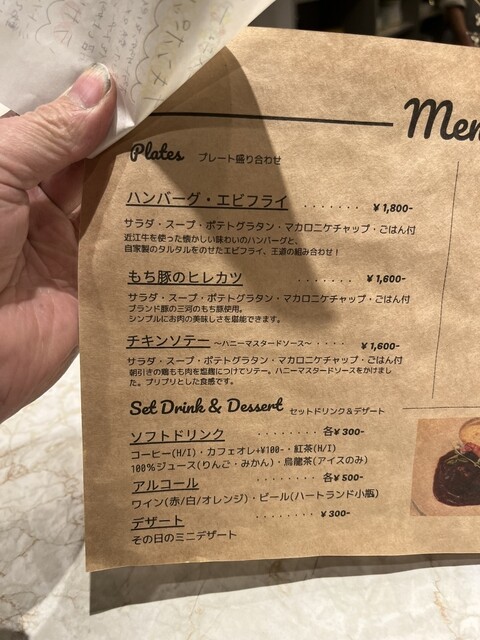 Plates プレート盛り合わせ
ハンバーグ・エビフライ ・・・・・・・ ¥1,800-
サラダ・スープ・ポテトグラタン・マカロニケチャップ・ごはん付
近江牛を使った懐かしい味わいのハンバーグと、
自家製のタルタルをのせたエビフライ、王道の組み合わせ!
もち豚のヒレカツ ・・・・・・・ ¥1,600-
サラダ・スープ・ポテトグラタン・マカロニケチャップ・ごはん付
ブランド豚の三河のもち豚使用。
シンプルにお肉の美味しさを堪能できます。
チキンソテー ～ハニーマスタードソース～ ・・・・ ¥1,600-
サラダ・スープ・ポテトグラタン・マカロニケチャップ・ごはん付
朝引きの鶏もも肉を塩麹につけてソテー。ハニーマスタードソースをかけまし
た。プリプリとした食感です。
Set Drink & Dessert セットドリンク&デザート
ソフトドリンク ・・・・・・・・ 各¥300-
コーヒー(H/I)・カフェオレ+¥100-・紅茶(H/I)
100%ジュース(りんご・みかん)・烏龍茶(アイスのみ)
アルコール ・・・・・・・・ 各¥500-
ワイン(赤/白/オレンジ)・ビール(ハートランド小瓶)
デザート ・・・・・・・・ ¥300-
その日のミニデザート